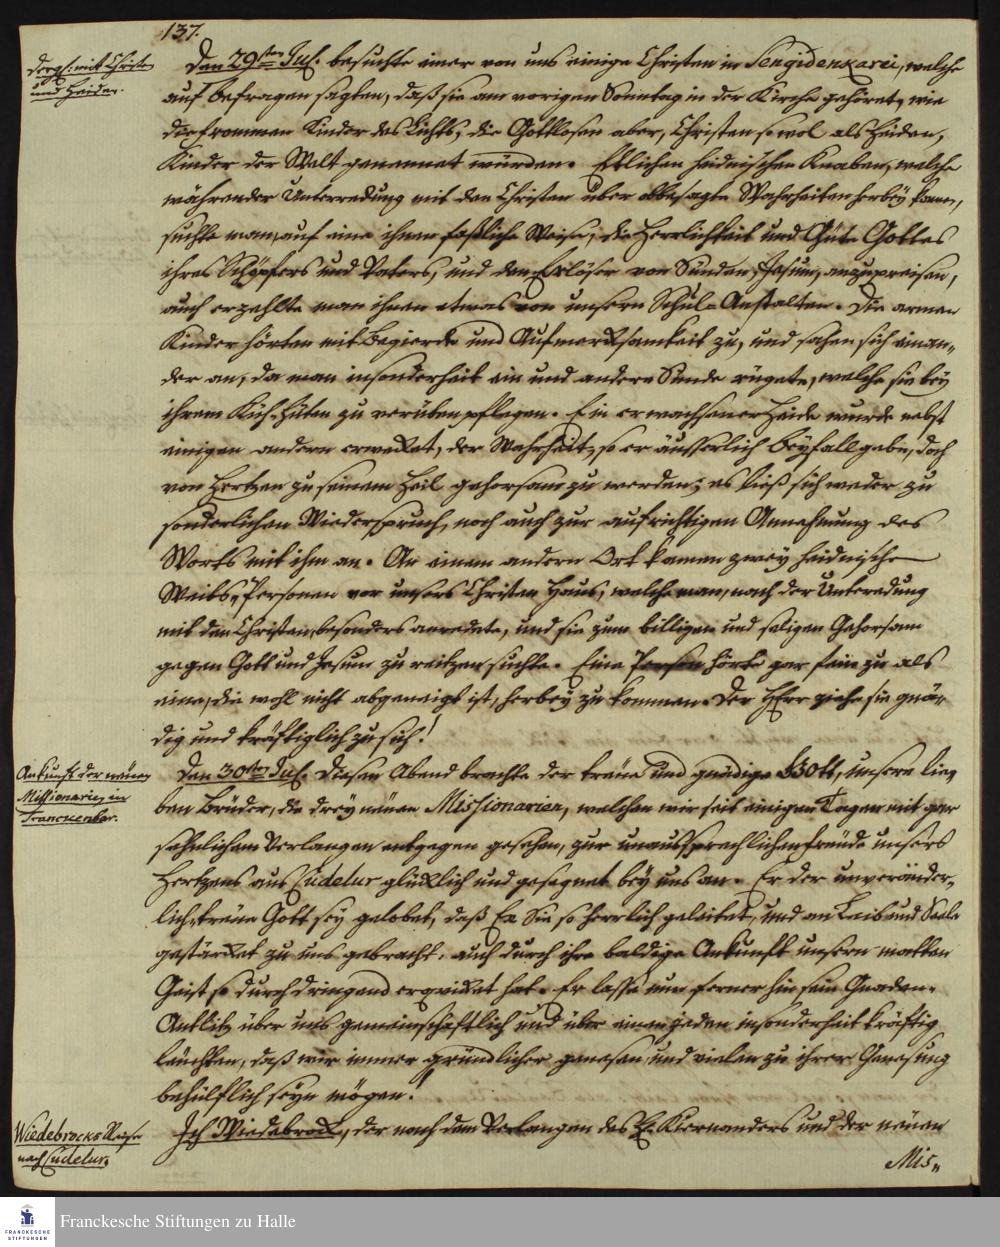 137.
Dergl. mit Christen
und Heiden.
Den 29sten Jul. besuchte einer von uns einige Christen in Sengidenkarei, welche
auf befragen sagten, daß sie am vorigen Sonntag in der Kirche gehöret, wie
die frommen Kinder des Lichts, die Gottlosen aber, Christen so wol als Heiden,
Kinder der Welt genennet würden. Etlichen heidnischen Knaben, welche
während der Unterredung mit den Christen über obbesagte Wahrheiten herbey kamen,
suchte man, auf eine ihnen faßliche Weise, die Herrlichkeit und Güte Gottes
ihres Schöpfers und Vaters, und den Erlöser von Sünden, Jesum, anzupreisen,
auch erzehlte man ihnen etwas von unsern Schul-Anstalten. Die armen
Kinder hörten mit Begierde und Aufmerksamkeit zu, und sahen sich einan-
der an, da man insonderheit ein und andere Sünde rügete, welche sie bey
ihrem Küh-Hüten zu verüben pflegen. Ein erwachsener Heide wurde nebst
einigen andern erwecket, der Wahrheit, so er äusserlich Beyfall gabe, doch
von Hertzen zu seinem Heil gehorsam zu werden; es ließ sich weder zu
sonderlichen Wiederspruch, noch auch zur aufrichtigen Annehmung des
Worts mit ihm an. An einem andern Ort kamen zwey heidnische
Weibs-Personen vor unsers Christen Haus, welche man, nach der Unterredung
mit den Christen, besonders anredete, und sie zum billigen und seligen Gehorsam
gegen Gott und Jesum zu reitzen suchte. Eine Person hörte gar fein zu als
eine, die wohl nicht abgeneigt ist, herbey zu kommen. Der HErr ziehe sie gnä-
dig und kräftiglich zu sich!
Ankunft der neuen
Missionarien in
Tranckenbar.
Den 30sten Jul. Diesen Abend brachte der treue und gnädige Gott, unsere lie-
ben Brüder, die drey neuen Missionarien, welchen wir seit einigen Tagen mit gar
sehnlichem Verlangen entgegen gesehen, zur unaussprechlichen Freude unsers
Hertzens aus Cudelur glücklich und gesegnet bey uns an. Er der unveränder-
lich-treue Gott sey gelobet, daß Er Sie so herrlich geleitet, und an Leib und Seele
gestärcket zu uns gebracht, auch durch ihre baldige Ankunft unsern matten
Geist so durchdringend erquicket hat. Er lasse nun ferner hin sein Gnaden-
Antlitz über uns gemeinschaftlich und über einen jeden insonderheit kräftig
leuchten, daß wir immer gründlicher genesen, und vielen zu ihrer Genesung
behülflich seyn mögen!
Wiedebrocks Reise
nach Cudelur.
Ich Wiedebrock, der nach dem Verlangen des H. Kiernanders und der neuen
Mis-
FRANCKESCHE
STIFTUNGEN
Franckesche Stiftungen zu Halle